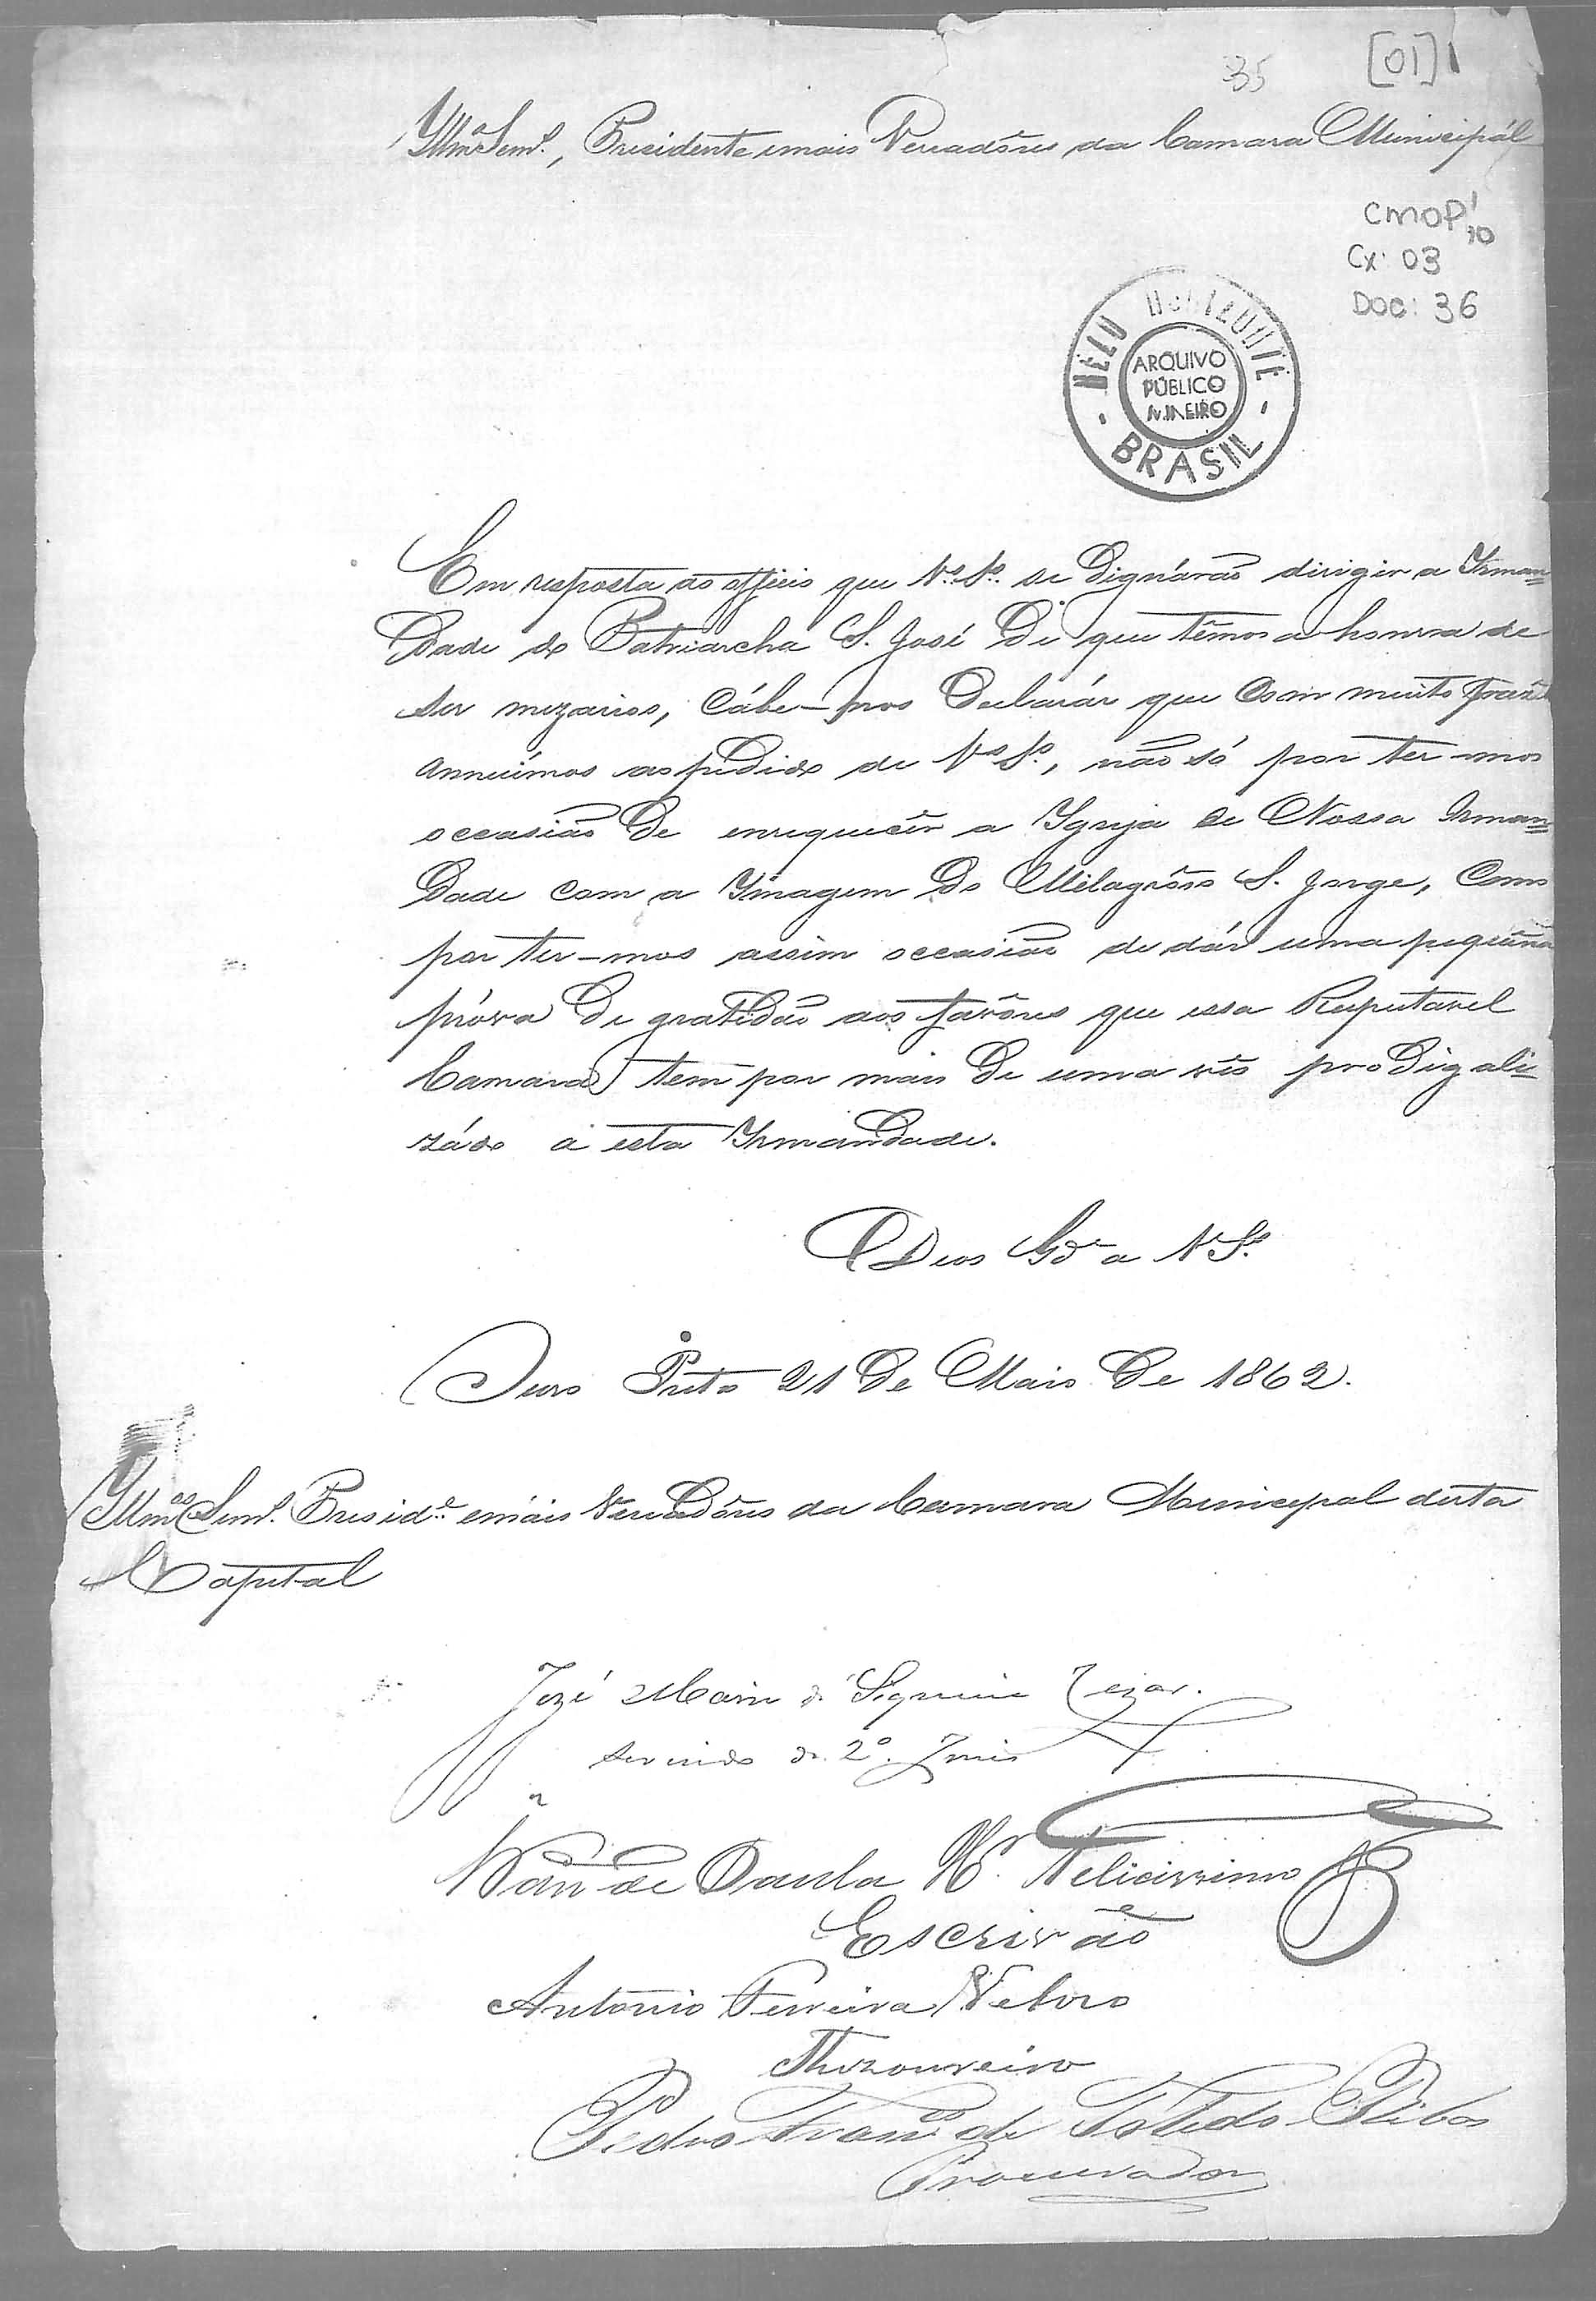 35
[01]
Illmos Senrs., Presidente e mais Vereadôres da Camara Municipál
CMOP 1/10
Cx: 03
DOC: 36
BELO HORIZONTE
ARQUIVO
PÚBLICO
MINEIRO
BRASIL
Em resposta ao officio que Vas. Sas. se Dignárão dirigir a Irman=
Dade do Patriarcha S. José De que têmos a honrra de
ser mezarios, Cábe-nos Declarár que Com muito prazer
annuimos ao pedido de Vas Sas., não só por ter-mos
occasião De enrequecêr a Igreja de Nossa Irman=
Dade com a Imagem Do Milagrôso S. Jorge, Como
por ter-mos assim occasião de dár uma pequêna
próva De gratidão aos favôres que essa Respeitavel
Camara tem por mais De uma vês proDigali=
zádo á esta Irmandade.
Deos Gde a VSas
Ouro Preto 21 De Maio De 1862.
Illmos Senrs. Preside e máis Vereadôres da Camara Municipal desta
Capital
Jozé Maria de Siqueira
servindo de 2º. Juis
Franco de Paula Felicissimo
Escrivão
Antônio Ferreira Velozo
Thezoureiro
Pedro Franco de Tolêdo Ribas
Procurador